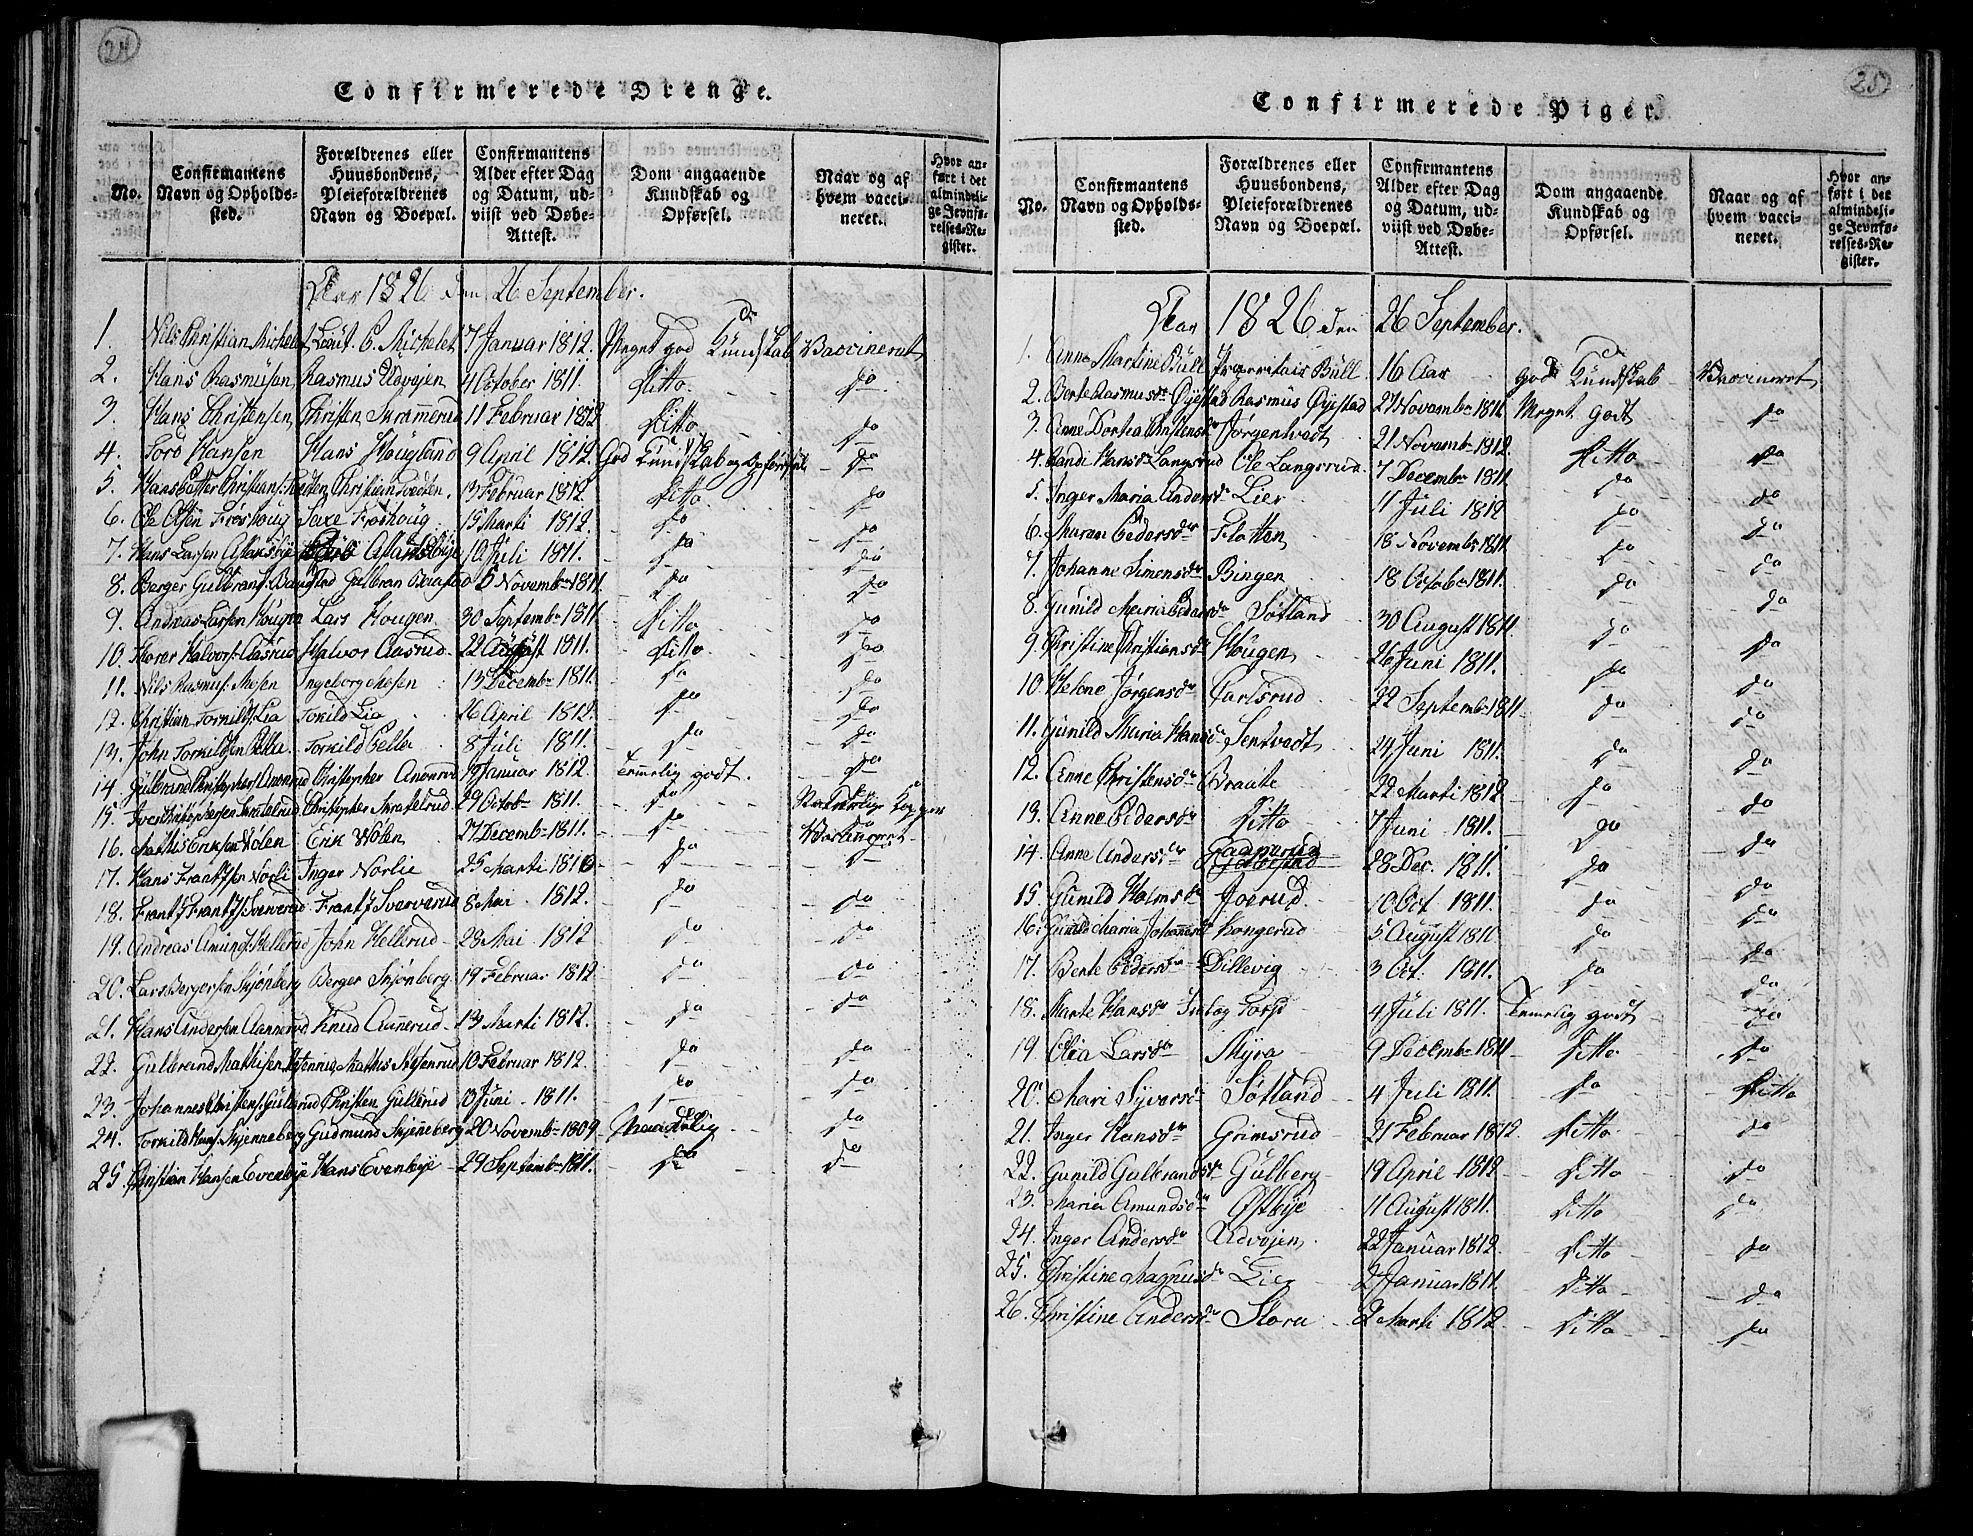 24
Confirmerede Drenge.
No. Confirmantens Navn og Opholds-sted. Forældrenes eller Huusbondens, Pleieforældrenes Navn og Boepæl. Confirmantens Alder efter Dag og Datum, ud-viist ved Døbe-Attest. Dom angaaende Kundskab og Opførsel. Naar og af hvem vacci-neret. Hvor an-ført i det almindeli-ge Jevnfø-relses-Re-gister.
Aar 1826 den 26 September.
1. Nils Christian Michelet Lieut. C. Michelet 7 Januar 1812. Meget god Kundskab Vaccineret
2. Hans Rasmusen Rasmus Udvøjen 4 October 1811. Ditto do
3. Hans Christensen Christen Skrammerud 11 Februar 1812 Ditto do
4. Tord Hansen Hans Hougland 9 April 1812. God Kundskab og Opførsel do
5. Hans Christians: Tvedten Christian Tvedten. 13 Februar 1812. Ditto do
6. Ole Frøshoug Frøshoug 15 Marti 1812 do do
7. Hans Larsen 10 Juli 1811. do do
8. Berger Gulbrans: Gulbran 5 Novembr 1811. do do
9. Andreas Larsen Hougen Lars Hougen 30 Septembr 1811 Ditto do
10. Halvors: Aasrud Halvor Aasrud 22 August 1811. Ditto do
11. Nils Rasmus: Mosen Ingeborg Mosen 13 Decembr 1811. do do
12. Christian Torkilds: Lia Torkild Lia 26 April 1812. do do
13. John Torkildsen Torkild 8 Juli 1811. do do
14. Gulbrand Christophers: Christopher 19 Januar 1812. Temmelig godt. do
15. Iver Christophersen Christopher 29 Octobr 1811. do Naturlige Kopper
16. Mathis Eriksen Wølen Erik Wølen 27 Decembr 1811. do Vaccineret
17. Hans Frantzsen Nørli Inger Nørlie 25 Marti 1810 do do
18. Frantz Frantzs: Sververud Frantz Sververud 8 Mai 1812. do do
19. Andreas Amunds: Hellerud John Hellerud 28 Mai 1812 do do
20. Lars Bergersen Skjønberg Berger Skjønberg 19 Februar 1812 do do
21. Hans Andersen Aannerud Knud Aannerud 13 Marti 1812. do do
22. Gulbrand Mathisen Mathis 10 Februar 1812. do do
23. Johannes Christens: Gullerud Christen Gullerud 10 Juni 1811. do do
24. Torkild Hans: Skjenneberg Gudmund Skjenneberg 20 Novembr 1809 Maadelig do
25. Christian Hansen Evenbye Hans Evenbye 29 Septembr 1811. do do
25
Confirmerede Piger.
No. Confirmantens Navn og Opholds-sted. Forældrenes eller Huusbondens, Pleieforældrenes Navn og Boepæl. Confirmantens Alder efter Dag og Datum, ud-viist ved Døbe-Attest. Dom angaaende Kundskab og Opførsel. Naar og af hvem vacci-neret. Hvor an-ført i det almindeli-ge Jevnfø-relses-Re-gister.
Aar 1826 den 26 September.
1. Anne Martine Büll Proprietair Büll 16 Aar god Kundskab Vaccineret
2. Berte Rasmusdr Øyestad Rasmus Øyestad 27 Novembr 1811 Meget godt do
3. Anne Dortea Christensdr Jørgentvedt 21 Novembr 1812. Ditto do
4. Randi Hansdr Langsrud Ole Langsrud. 7 Decembr 1811. do do
5. Inger Maria Andersdr Lier 11 Juli 1812 do do
6. Maren Pedersdr Flatten 18 Novembr 1811. do do
7. Johanne Simensdr Bingen 18 Octobr 1811. do do
8. Gunild Maria Pedersdr Søtland 30 August 1811. do do
9. Christine Christiansdr Hougen 26 Juni 1811. do do
10. Helene Jørgensdr Carlsrud 22 Septembr 1811 do do
11. Gunild Maria Hansdr Tentvedt 24 Juni 1811. do do
12. Anne Christensdr Braate 22 Marti 1812 do do
13. Anne Pedersdr Ditto 7 Juni 1811. do do
14. Anne Andersdr 28 Dec. 1811. do do
15. Gunild Holmsdr Joerud 10 Oct 1811. do do
16. Gunild Maria Johannesdr Kongerud 5 August 1810 do do
17. Berte Pedersdr Dillevig 3 Oct. 1811. do do
18. Marte Hansdr Torp 4 Juli 1811. Temelig godt do
19. Olia Larsdr Myra 9 Decembr 1811 Ditto do
20. Mari Syversdr Søtland 4 Juli 1811. do Ditto
21. Inger Hansdr Grimsrud 21 Februar 1812. Ditto do
22. Gunild Gulbrandsdr Gulberg 19 April 1812 Ditto do
23. Maria Amundsdr Østbye 11 August 1811. Ditto do
24. Inger Andersdr Udvøjen 22 Januar 1812. Ditto do
25. Christine Magnusdr Lier 2 Januar 1811. Ditto do
26. Christine Andersdr Stora 2 Marti 1812 Ditto do